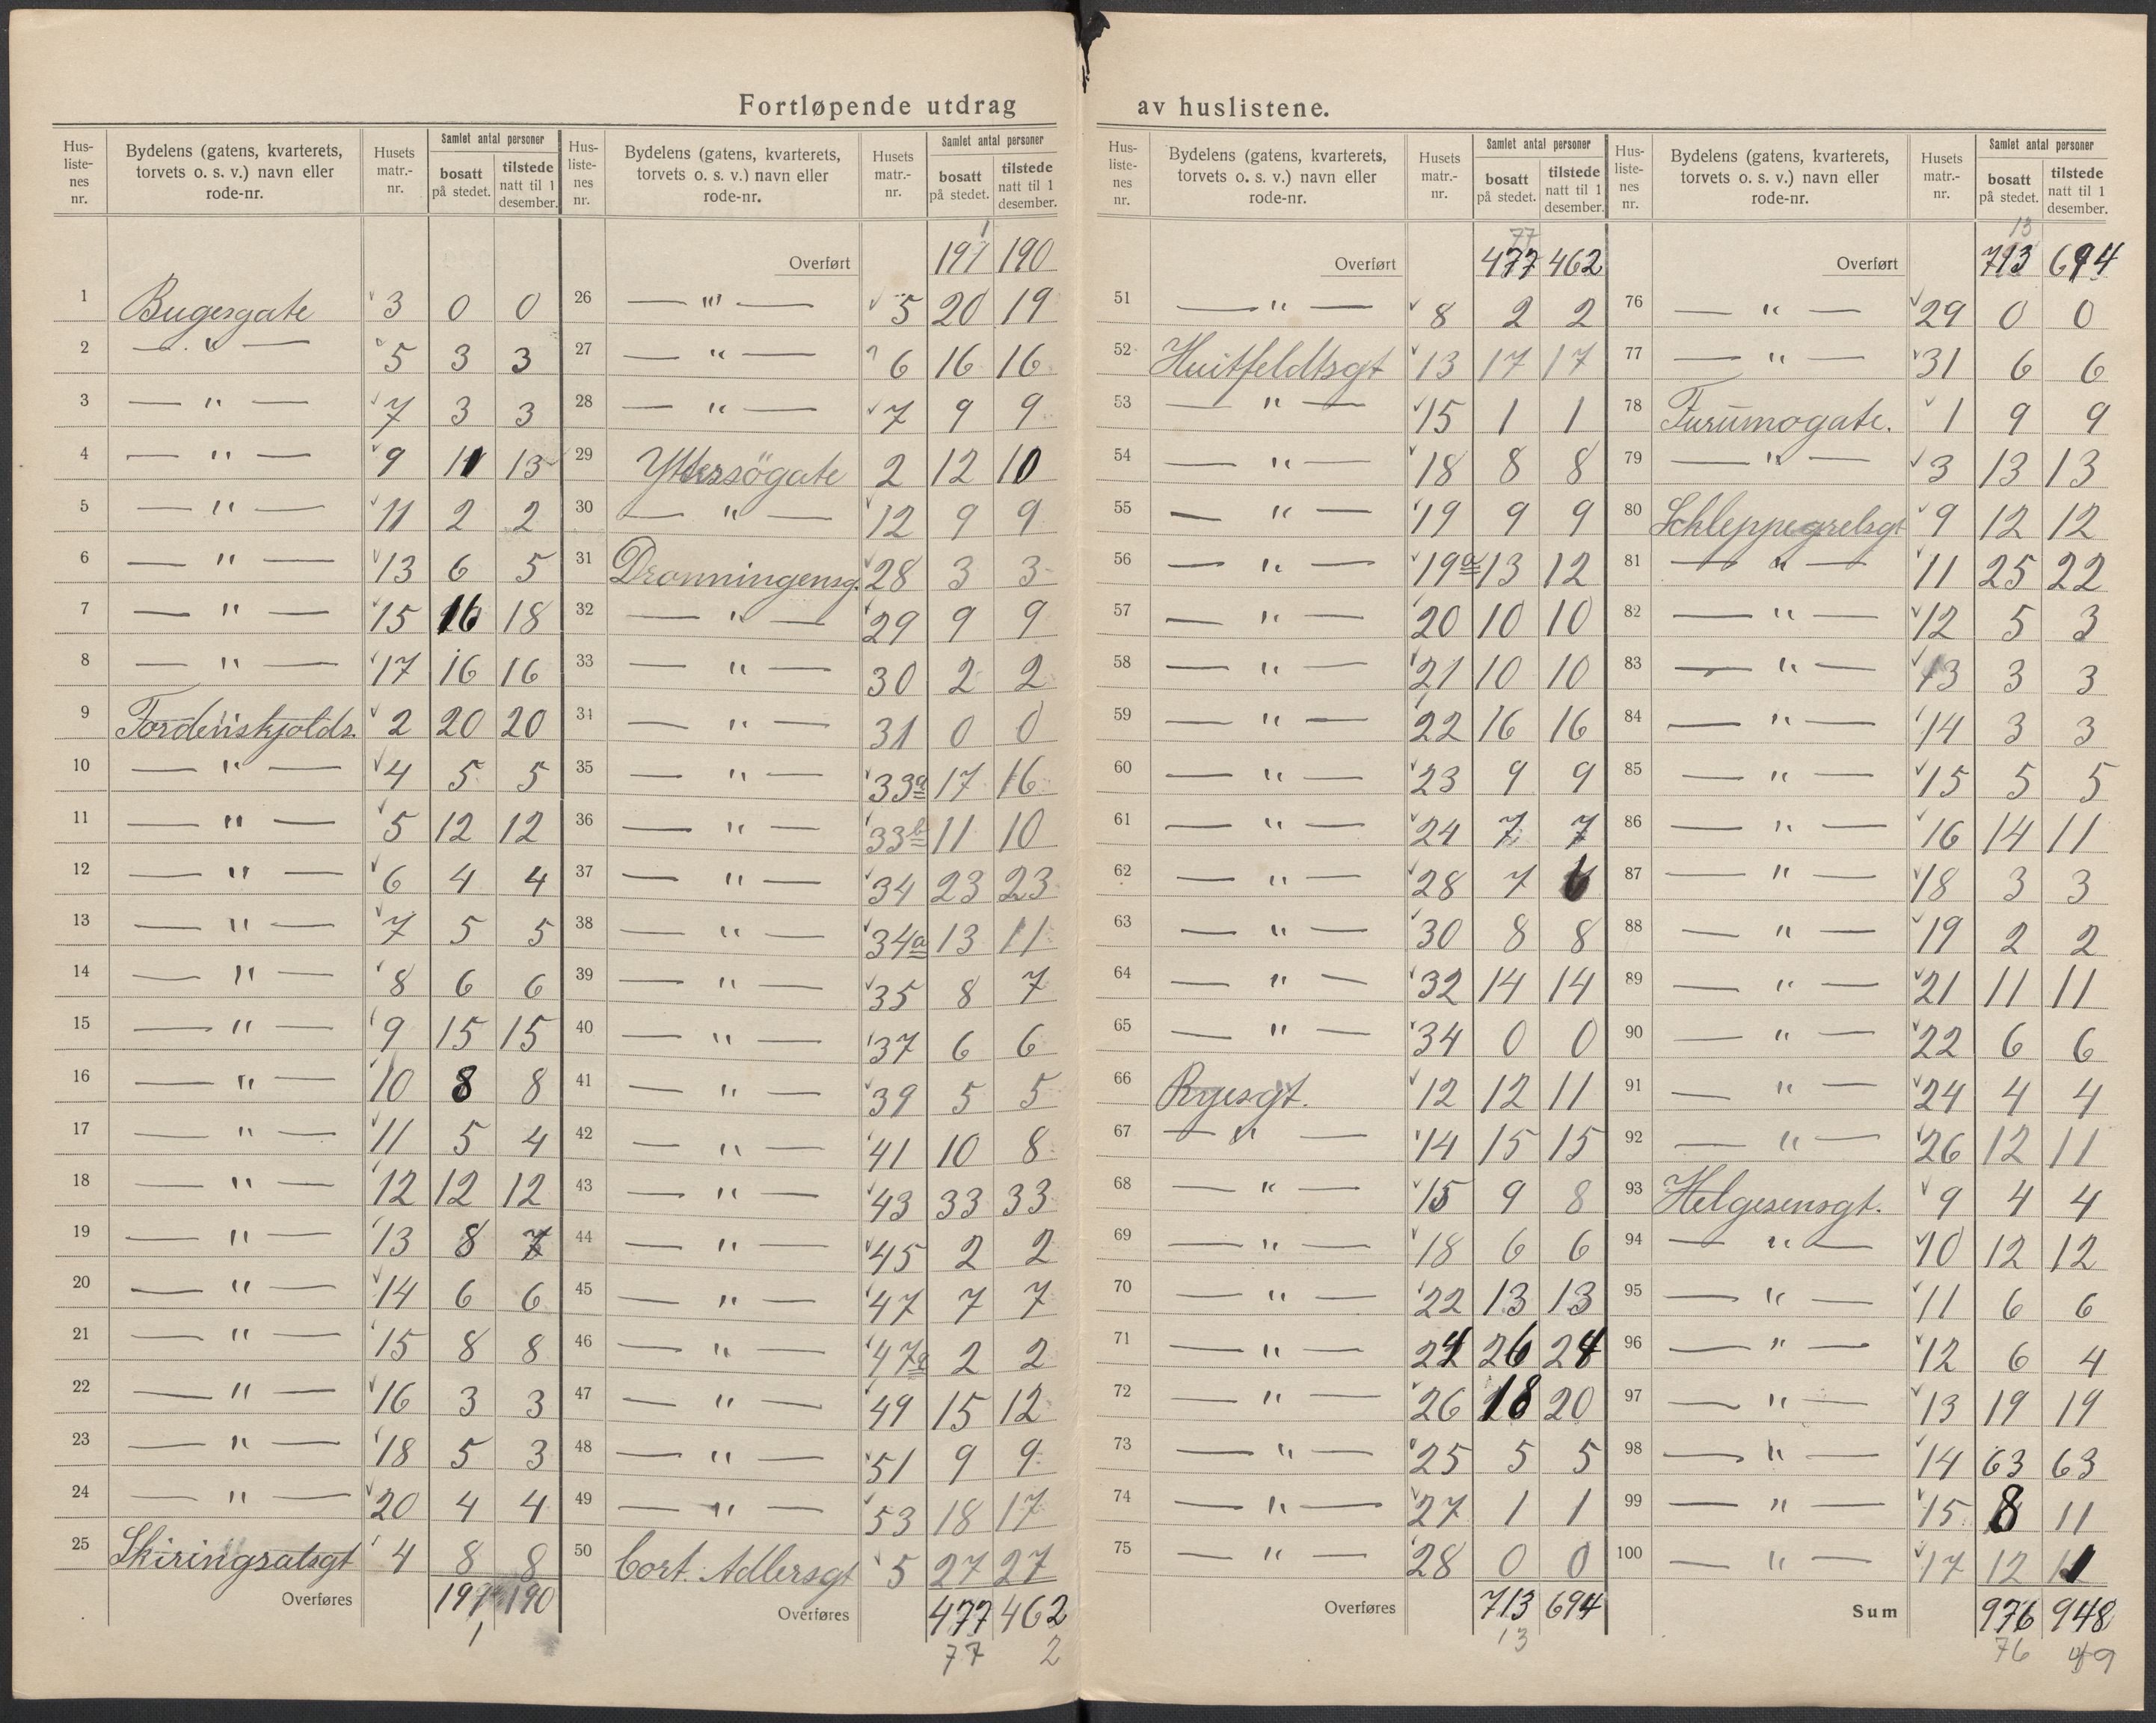 Fortløpende utdrag av huslistene.
Hus-listenes nr. | Bydelens (gatens, kvarterets, torvets o. s. v.) navn eller rode-nr. | Husets matr.-nr. | Samlet antal personer bosatt på stedet. | tilstede natt til 1 desember.
1 Bugesgate 3 0 0
2 — " — 5 3 3
3 — " — 7 3 3
4 — " — 9 11 13
5 — " — 11 2 2
6 — " — 13 6 5
7 — " — 15 16 18
8 — " — 17 16 16
9 Tordenskjolds. 2 20 20
10 — " — 4 5 5
11 — " — 5 12 12
12 — " — 6 4 4
13 — " — 7 5 5
14 — " — 8 6 6
15 — " — 9 15 15
16 — " — 10 8 8
17 — " — 11 5 4
18 — " — 12 12 12
19 — " — 13 8 7
20 — " — 14 6 6
21 — " — 15 8 8
22 — " — 16 3 3
23 — " — 18 5 3
24 — " — 20 4 4
25 Skiringsalsgt 4 8 8
Overføres 191 190
1
Hus-listenes nr. | Bydelens (gatens, kvarterets, torvets o. s. v.) navn eller rode-nr. | Husets matr.-nr. | Samlet antal personer bosatt på stedet. | tilstede natt til 1 desember.
Overført 191 190
26 — " — 5 20 19
27 — " — 6 16 16
28 — " — 7 9 9
29 Yttersögate 2 12 10
30 — " — 12 9 9
31 Dronningensg. 28 3 3
32 — " — 29 9 9
33 — " — 30 2 2
34 — " — 31 0 0
35 — " — 33a 17 16
36 — " — 33b 11 10
37 — " — 34 23 23
38 — " — 34a 13 11
39 — " — 35 8 7
40 — " — 37 6 6
41 — " — 39 5 5
42 — " — 41 10 8
43 — " — 43 33 33
44 — " — 45 2 2
45 — " — 47 7 7
46 — " — 47a 2 2
47 — " — 49 15 12
48 — " — 51 9 9
49 — " — 53 18 17
50 Cort. Adlersgt 5 27 27
Overføres 477 462
77 2
Hus-listenes nr. | Bydelens (gatens, kvarterets, torvets o. s. v.) navn eller rode-nr. | Husets matr.-nr. | Samlet antal personer bosatt på stedet. | tilstede natt til 1 desember.
77
Overført 477 462
51 — " — 8 2 2
52 Huitfeldtsgt 13 17 17
53 — " — 15 1 1
54 — " — 18 8 8
55 — " — 19 9 9
56 — " — 19a 13 12
57 — " — 20 10 10
58 — " — 21 10 10
59 — " — 22 16 16
60 — " — 23 9 9
61 — " — 24 7 7
62 — " — 28 7 6
63 — " — 30 8 8
64 — " — 32 14 14
65 — " — 34 0 0
66 Ryesgt. 12 12 11
67 — " — 14 15 15
68 — " — 15 9 8
69 — " — 18 6 6
70 — " — 22 13 13
71 — " — 24 26 24
72 — " — 26 18 20
73 — " — 25 5 5
74 — " — 27 1 1
75 — " — 28 0 0
Overføres 713 694
13
Hus-listenes nr. | Bydelens (gatens, kvarterets, torvets o. s. v.) navn eller rode-nr. | Husets matr.-nr. | Samlet antal personer bosatt på stedet. | tilstede natt til 1 desember.
13
Overført 713 694
76 — " — 29 0 0
77 — " — 31 6 6
78 Furumogate. 1 9 9
79 — " — 3 13 13
80 Schleppegrelsgt 9 12 12
81 — " — 11 25 22
82 — " — 12 5 3
83 — " — 13 3 3
84 — " — 14 3 3
85 — " — 15 5 5
86 — " — 16 14 11
87 — " — 18 3 3
88 — " — 19 2 2
89 — " — 21 11 11
90 — " — 22 6 6
91 — " — 24 4 4
92 — " — 26 12 11
93 Helgesensgt. 9 4 4
94 — " — 10 12 12
95 — " — 11 6 6
96 — " — 12 6 4
97 — " — 13 19 19
98 — " — 14 63 63
99 — " — 15 8 11
100 — " — 17 12 11
Sum 976 948
76